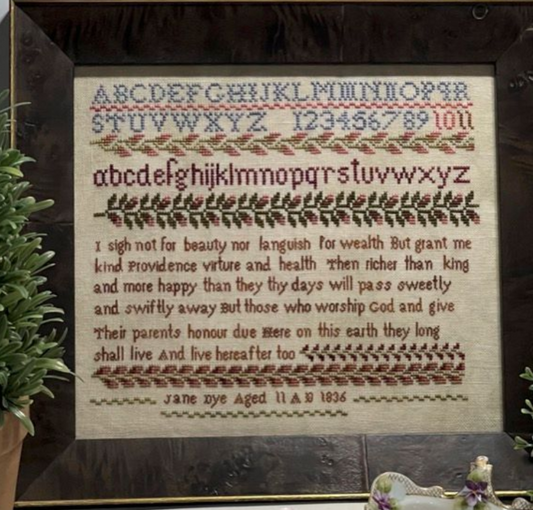 ABCDEFGHIJKLMNOPQR
STUVWXYZ 123456789 10 11
abcdefghijklmnopqrstuvwxyz
I sigh not for beauty nor languish for wealth But grant me
kind Providence virture and health Then richer than king
and more happy than they thy days will pass sweetly
and swiftly away But those who worship God and give
Their parents honour due Here on this earth they long
shall live And live hereafter too
Jane Dye Aged 11 A D 1836